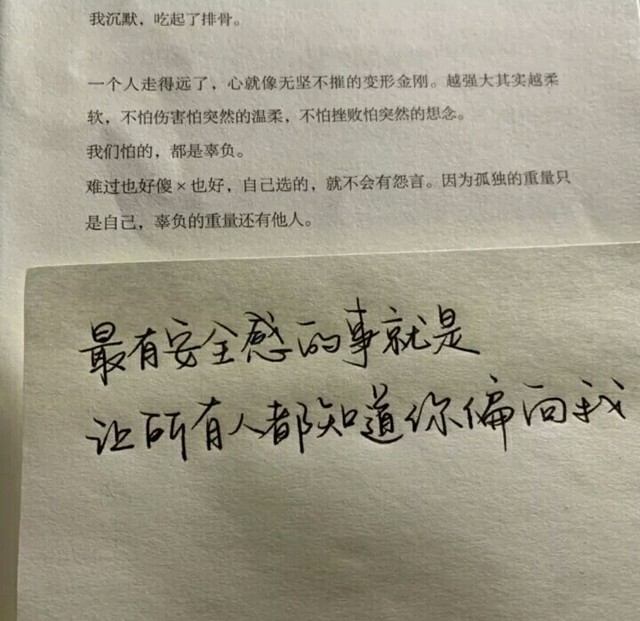 我沉默，吃起了排骨。
一个人走得远了，心就像无坚不摧的变形金刚。越强大其实越柔
软，不怕伤害怕突然的温柔，不怕挫败怕突然的想念。
我们怕的，都是辜负。
难过也好傻×也好，自己选的，就不会有怨言。因为孤独的重量只
是自己，辜负的重量还有他人。
最有安全感的事就是
让所有人都知道你偏向我